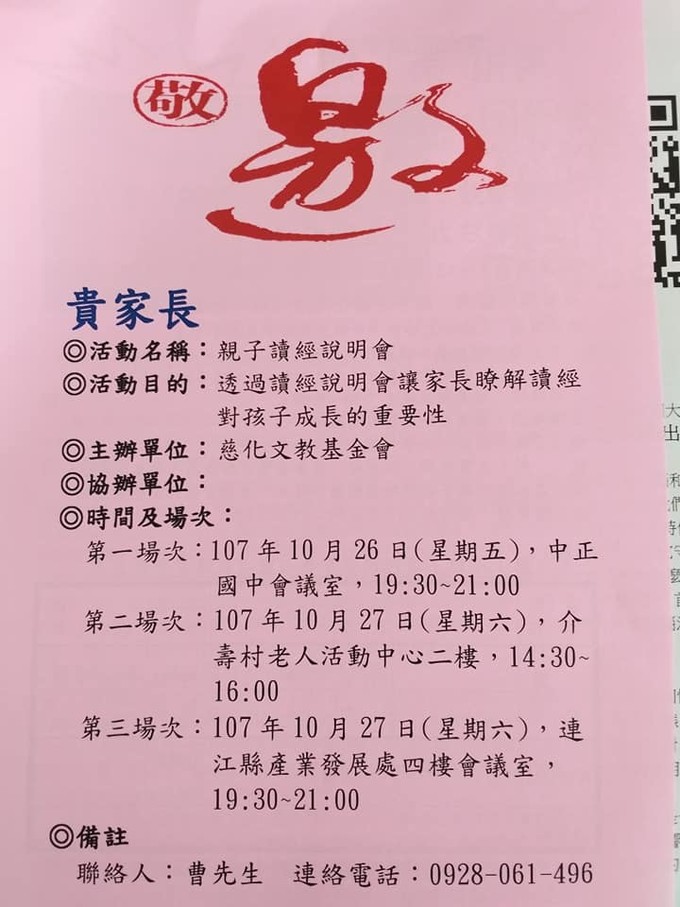 敬 邀
貴家長
◎活動名稱：親子讀經說明會
◎活動目的：透過讀經說明會讓家長瞭解讀經
對孩子成長的重要性
◎主辦單位：慈化文教基金會
◎協辦單位：
◎時間及場次：
第一場次：107 年 10 月 26 日(星期五)，中正
國中會議室，19:30~21:00
第二場次：107 年 10 月 27 日(星期六)，介
壽村老人活動中心二樓，14:30~
16:00
第三場次：107 年 10 月 27 日(星期六)，連
江縣產業發展處四樓會議室，
19:30~21:00
◎備註
聯絡人：曹先生　連絡電話：0928-061-496
大
出